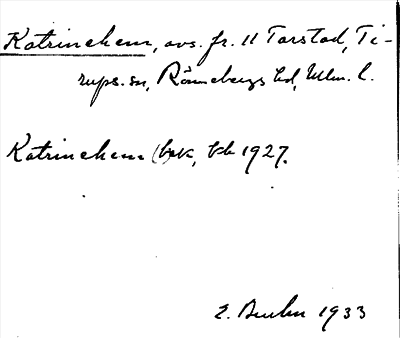 Katrinehem, avs. fr. 11 Tarstad, Ti-
rups sn, Rönnebergs hd, Mlm. l.
Katrinehem (bok, kb 1927.
E. 1933